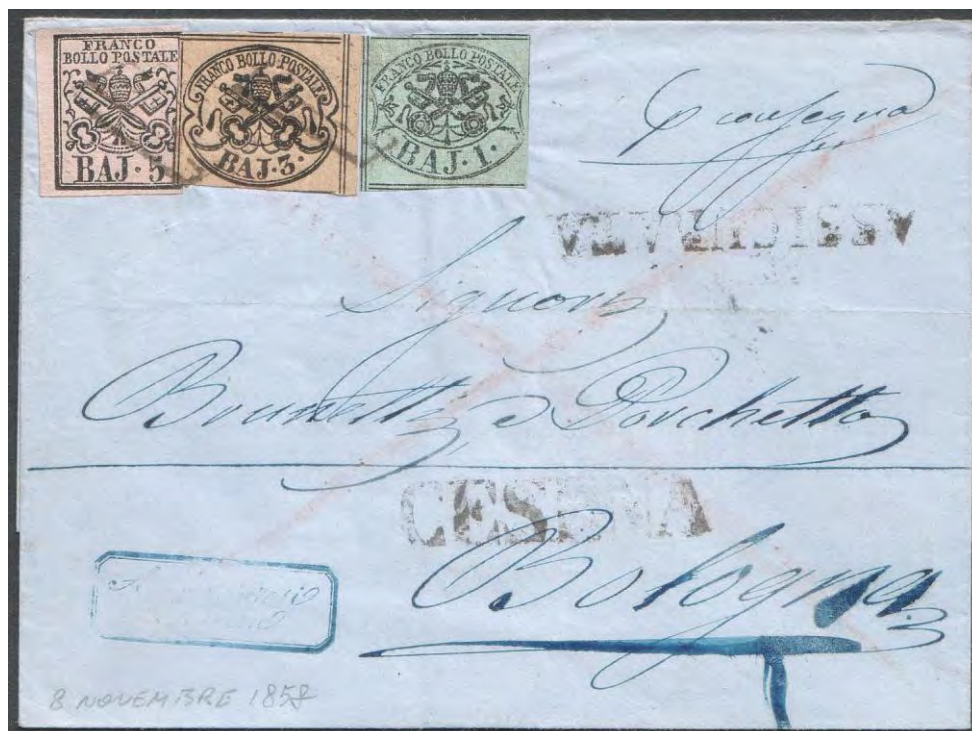 FRANCO
BOLLO POSTALE
BAJ. 5
FRANCO BOLLO POSTALE
BAJ. 3.
FRANCO BOLLO POSTALE
BAJ. 1.
p consegna
ASSICURATA
Signori
Brunetti e Porchetto
CESENA
Bologna
8 NOVEMBRE 1858